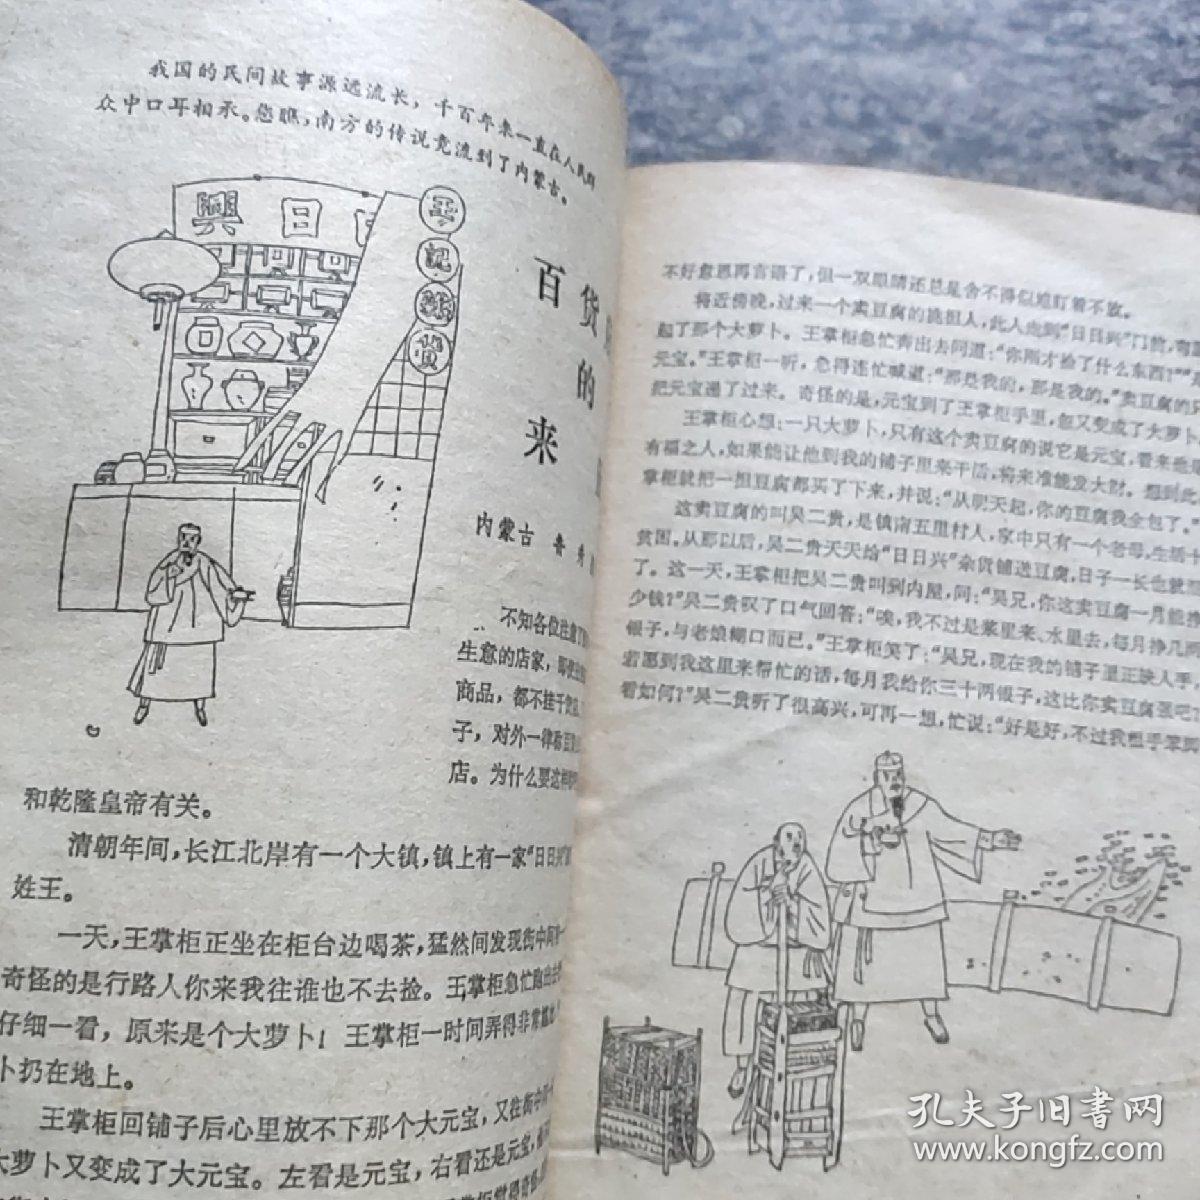 我国的民间故事源远流长，千百年来一直在人民群
众中口耳相承。您瞧，南方的传说竟流到了内蒙古。
興日日
王記雜貨
百货
的
来
内蒙古
不知各位注意了
生意的店家，即使
商品，都不挂千货
子，对外一律称百货
店。为什么要这样
和乾隆皇帝有关。
清朝年间，长江北岸有一个大镇，镇上有一家“日日兴”
姓王。
一天，王掌柜正坐在柜台边喝茶，猛然间发现街中间
奇怪的是行路人你来我往谁也不去捡。王掌柜急忙跑出去
仔细一看，原来是个大萝卜！王掌柜一时间弄得非常
卜扔在地上。
王掌柜回铺子后心里放不下那个大元宝，又往街中
大萝卜又变成了大元宝。左看是元宝，右看还是元宝，
王掌柜觉得奇怪
不好意思再言语了，但一双眼睛还总是舍不得似地盯着不放。
将近傍晚，过来一个卖豆腐的挑担人，此人走到“日日兴”门前，弯
起了那个大萝卜。王掌柜急忙奔出去问道：“你刚才捡了什么东西？”
元宝。”王掌柜一听，急得连忙喊道：“那是我的，那是我的。”卖豆腐的
把元宝递了过来。奇怪的是，元宝到了王掌柜手里，忽又变成了大萝卜
王掌柜心想：一只大萝卜，只有这个卖豆腐的说它是元宝，看来他是
有福之人，如果能让他到我的铺子里来干活，将来准能发大财。想到此，
掌柜就把一担豆腐都买了下来，并说：“从明天起，你的豆腐我全包了。”
这卖豆腐的叫吴二贵，是镇南五里村人，家中只有一个老母，生活十
贫困。从那以后，吴二贵天天给“日日兴”杂货铺送豆腐，日子一长也就
了。这一天，王掌柜把吴二贵叫到内屋，问：“吴兄，你这卖豆腐一月能挣
少钱？”吴二贵叹了口气回答：“唉，我不过是浆里来、水里去，每月挣几两
银子，与老娘糊口而已。”王掌柜笑了：“吴兄，现在我的铺子里正缺人手，
若愿到我这里来帮忙的话，每月我给你三十两银子，这比你卖豆腐强吧？
看如何？”吴二贵听了很高兴，可再一想，忙说：“好是好，不过我粗手笨脚
孔夫子旧书网
www.kongfz.com